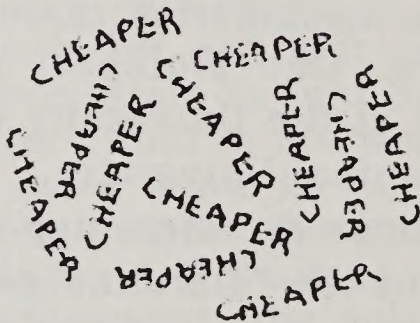 CHEAPER
CHEAPER
CHEAPER
CHEAPER
CHEAPER
CHEAPER
CHEAPER
CHEAPER
CHEAPER
CHEAPER
CHEAPER
CHEAPER